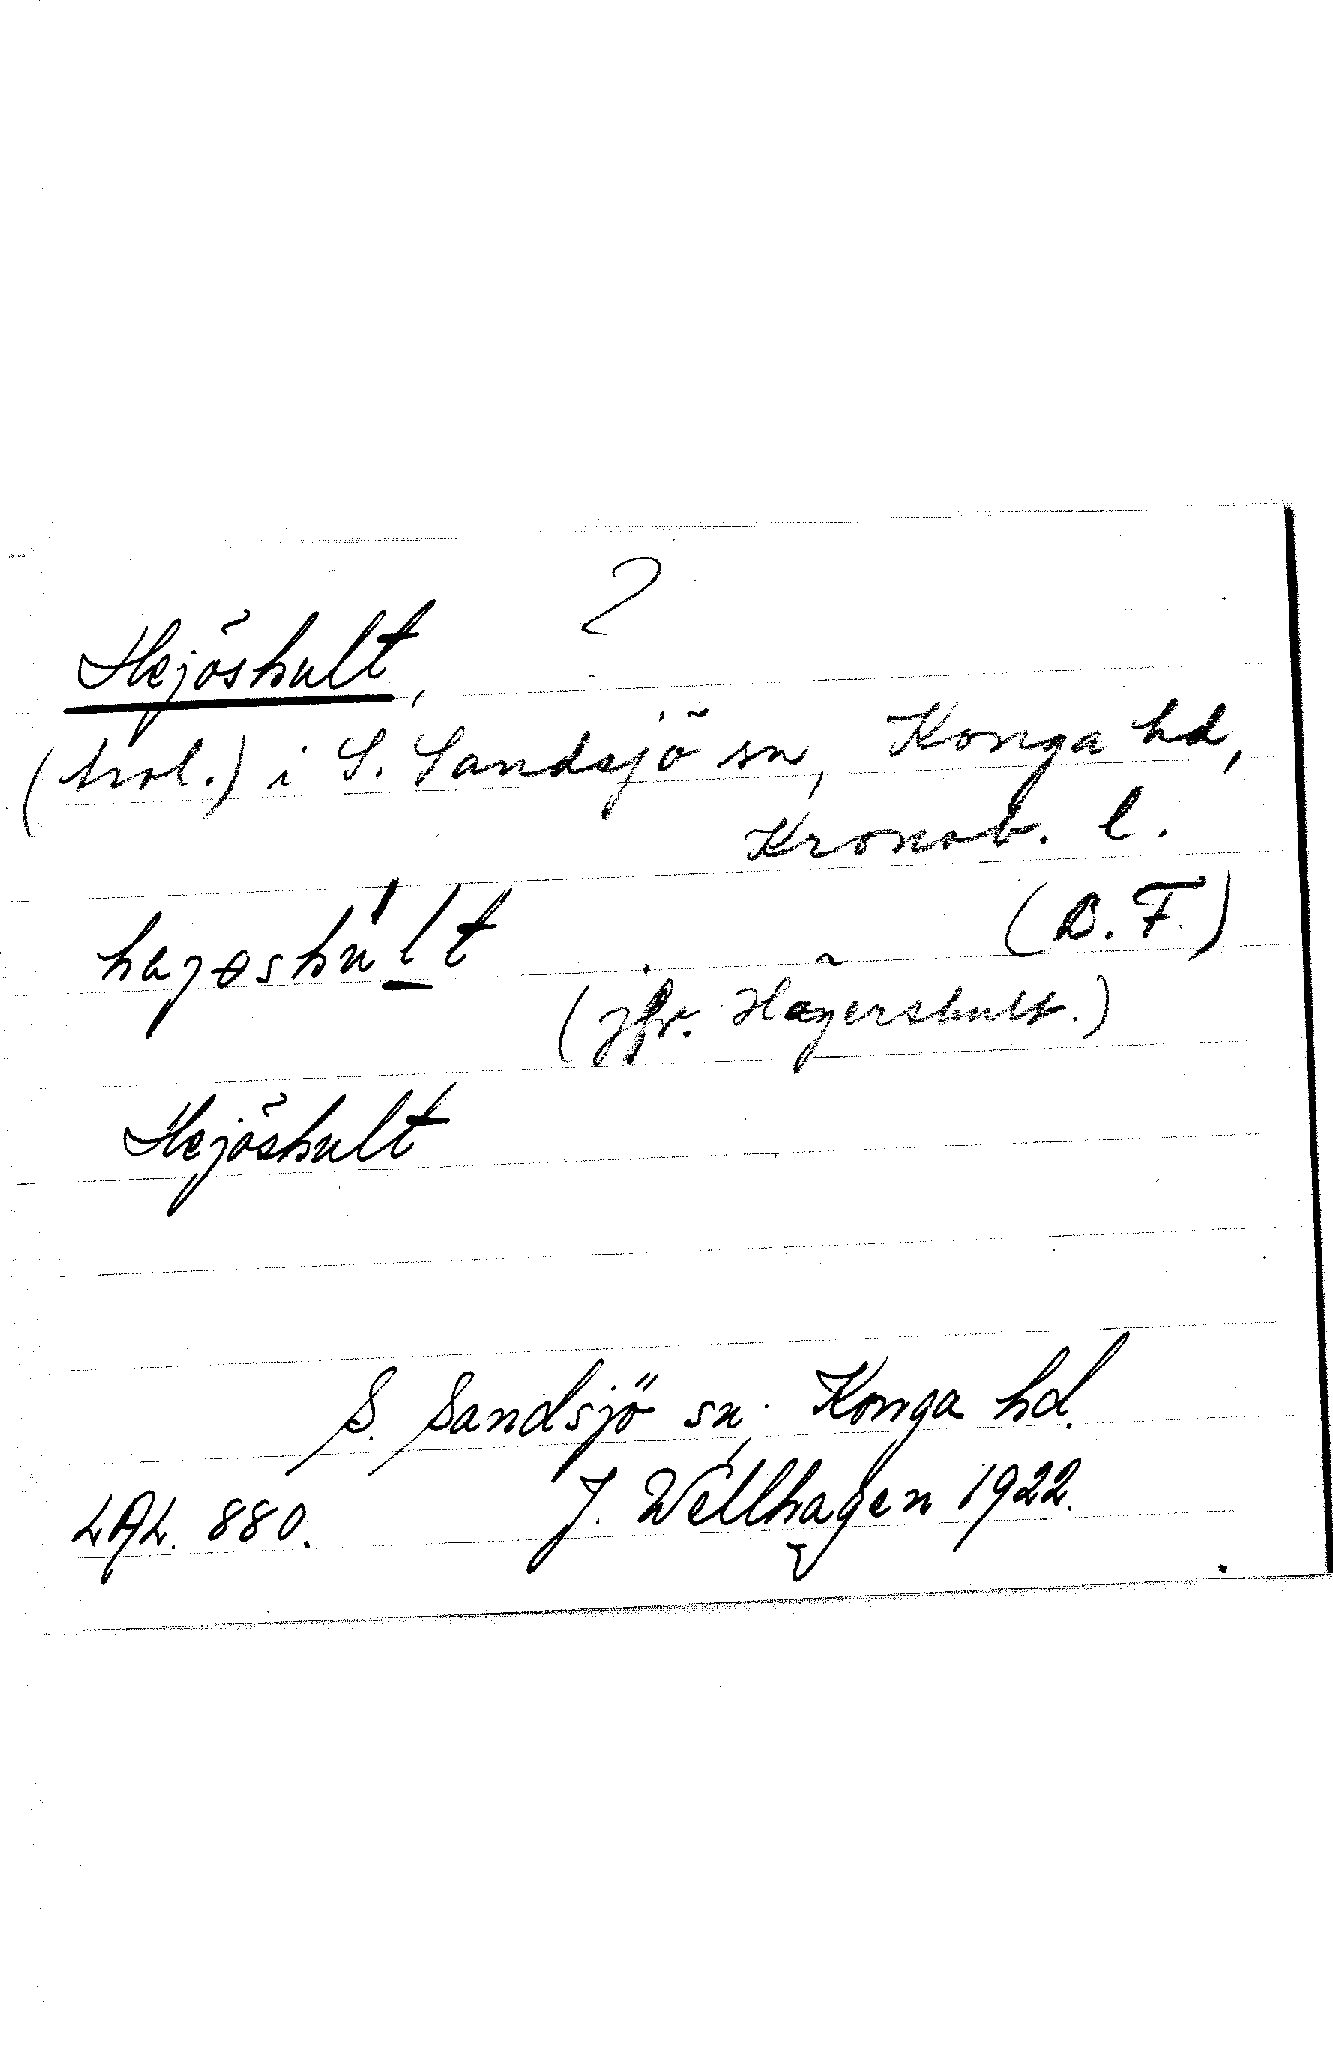 ?
Hejöshult,
(trol.) i S. Sandsjö sn, Konga hd,
Kronob. l.
hejøshúlt (B. F.)
(jfr. Hägershult.)
Hejöshult
S. Sandsjö sn, Konga hd.
LAL. 880. J. Wellhagen 1922.